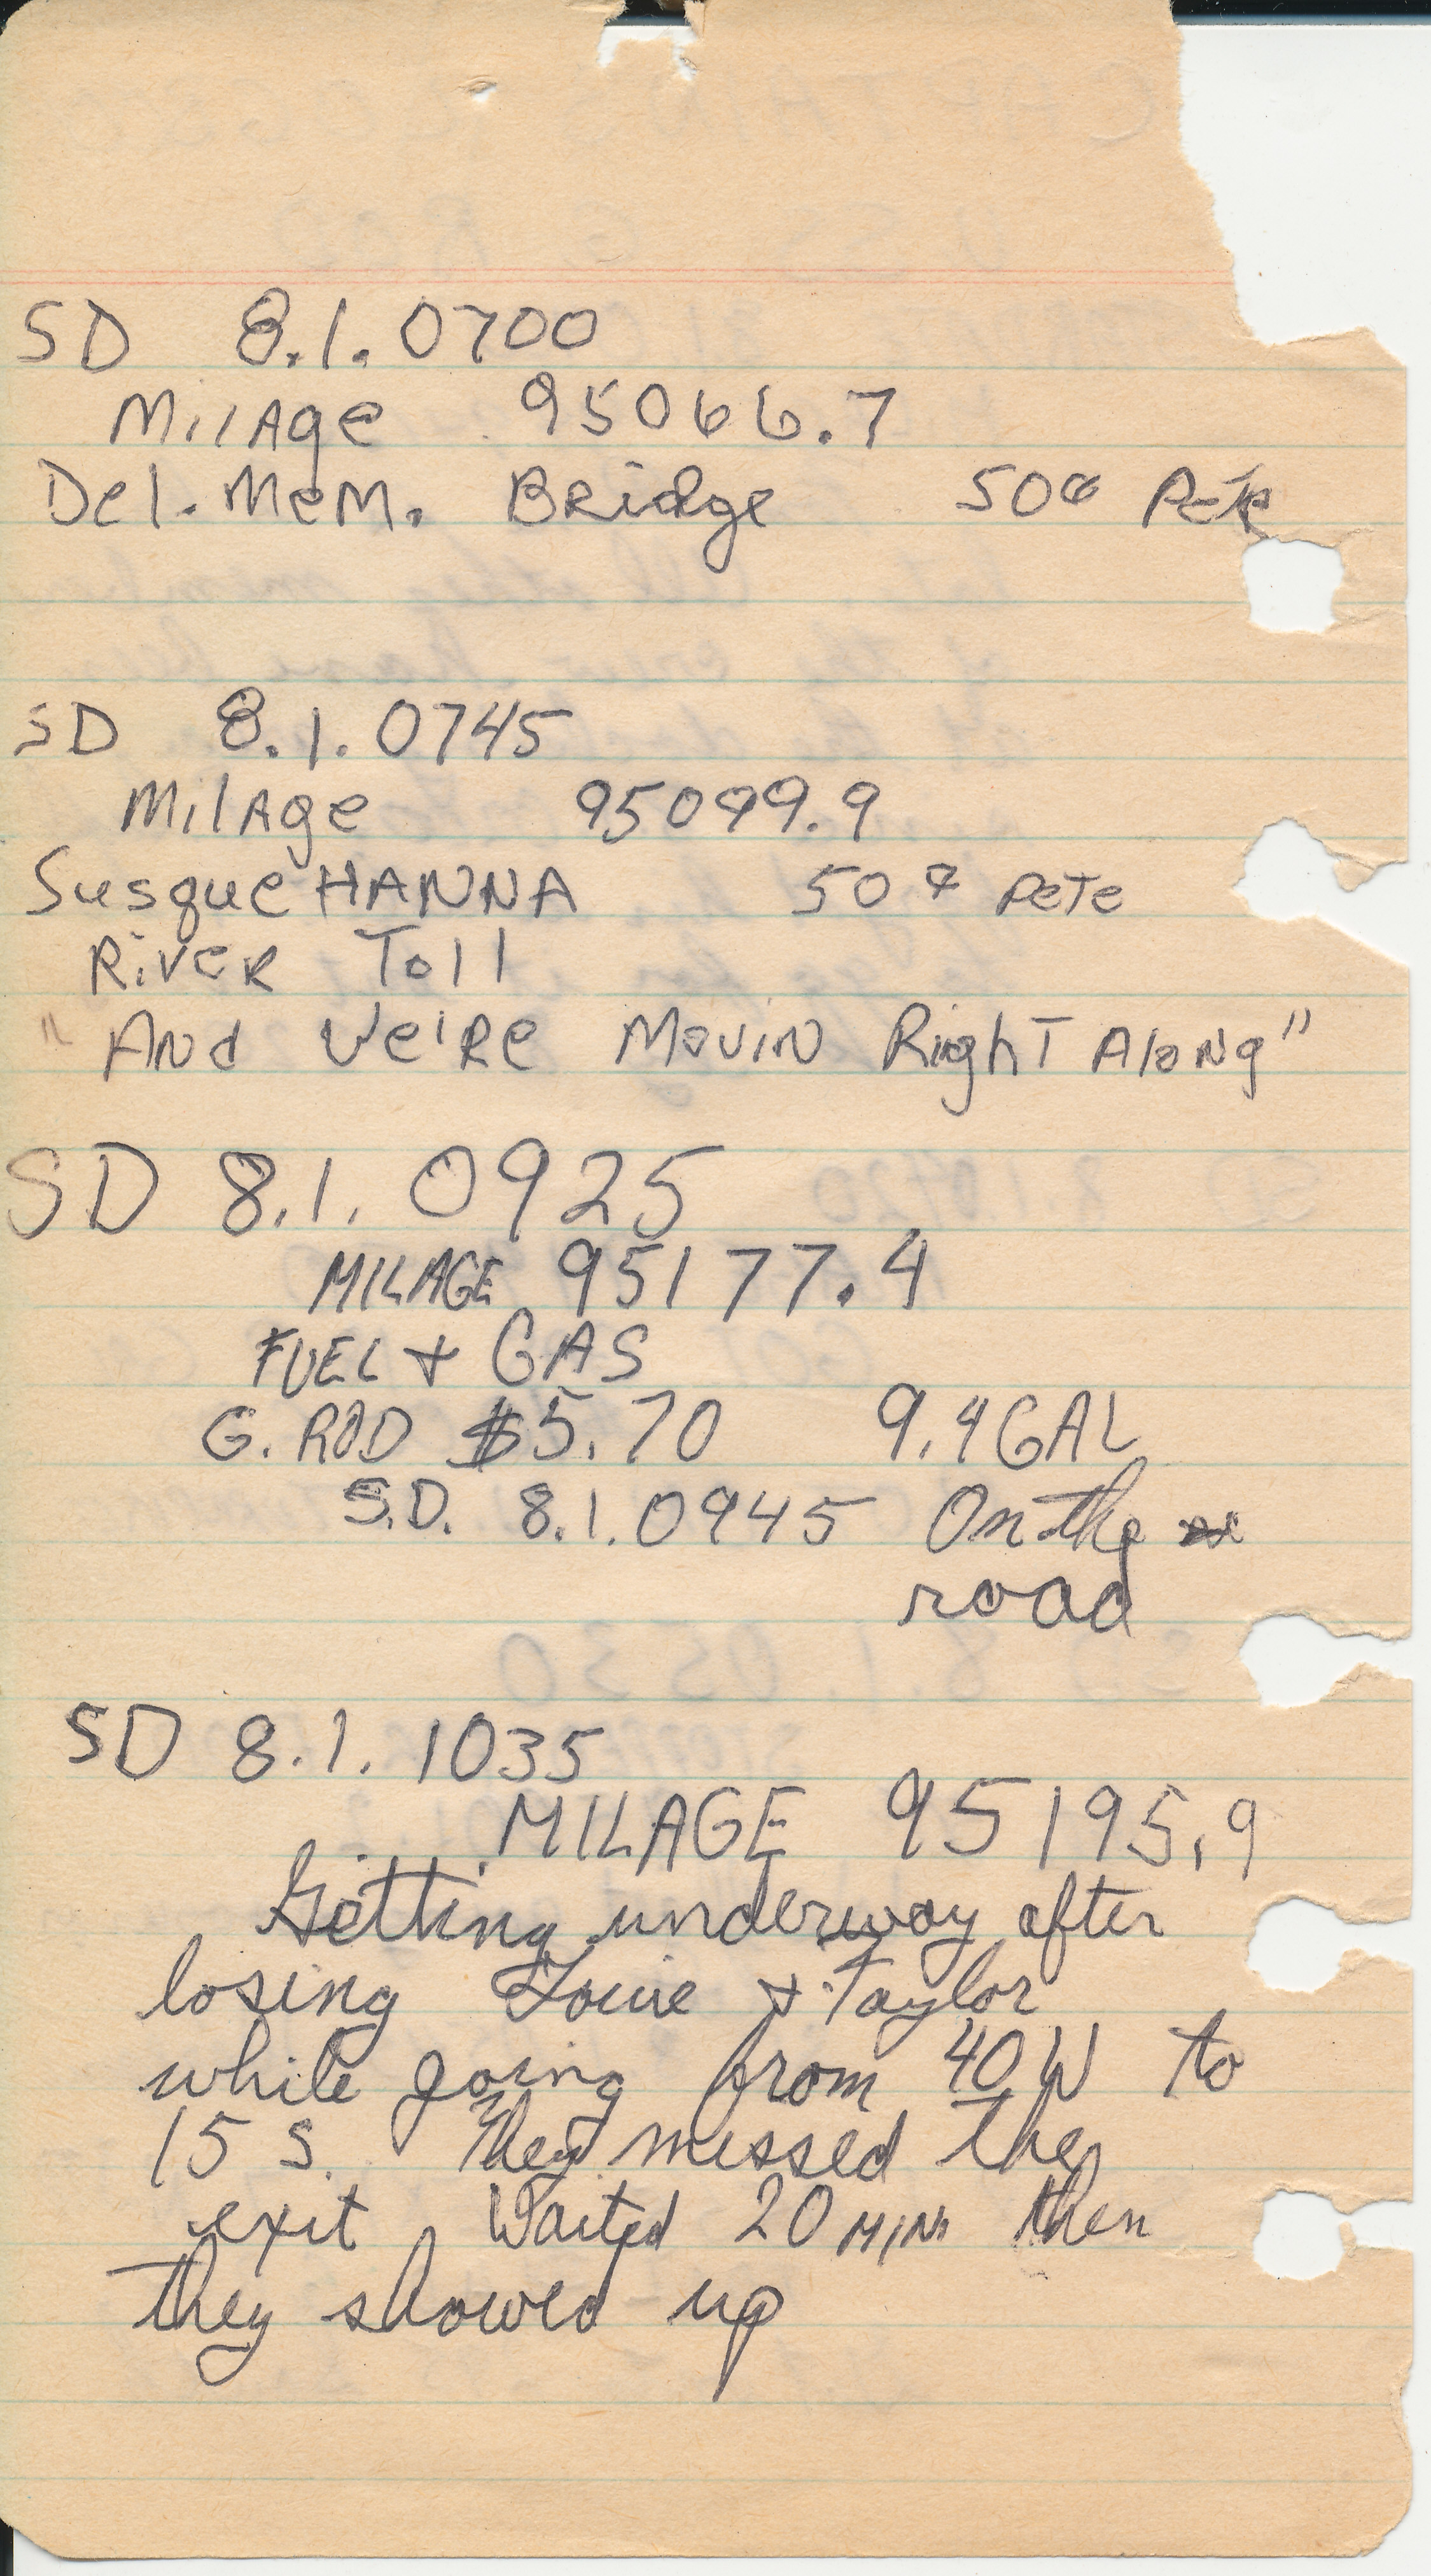 SD 8.1.0700
Milage 95066.7
Del. Mem. Bridge 50¢ Pete
SD 8.1.0745
Milage 95099.9
SusqueHANNA 50¢ Pete
River Toll
"And We're Movin Right Along"
SD 8.1.0925
MILAGE 95177.4
FUEL + GAS
G. ROD $5.70 9.4 GAL
S.D. 8.1.0945 On the
road
SD 8.1.1035
MILAGE 95195.9
Getting underway after
losing Louie + Taylor
while going from 40W to
15 S. They missed the
exit Waited 20 MIN then
they showed up